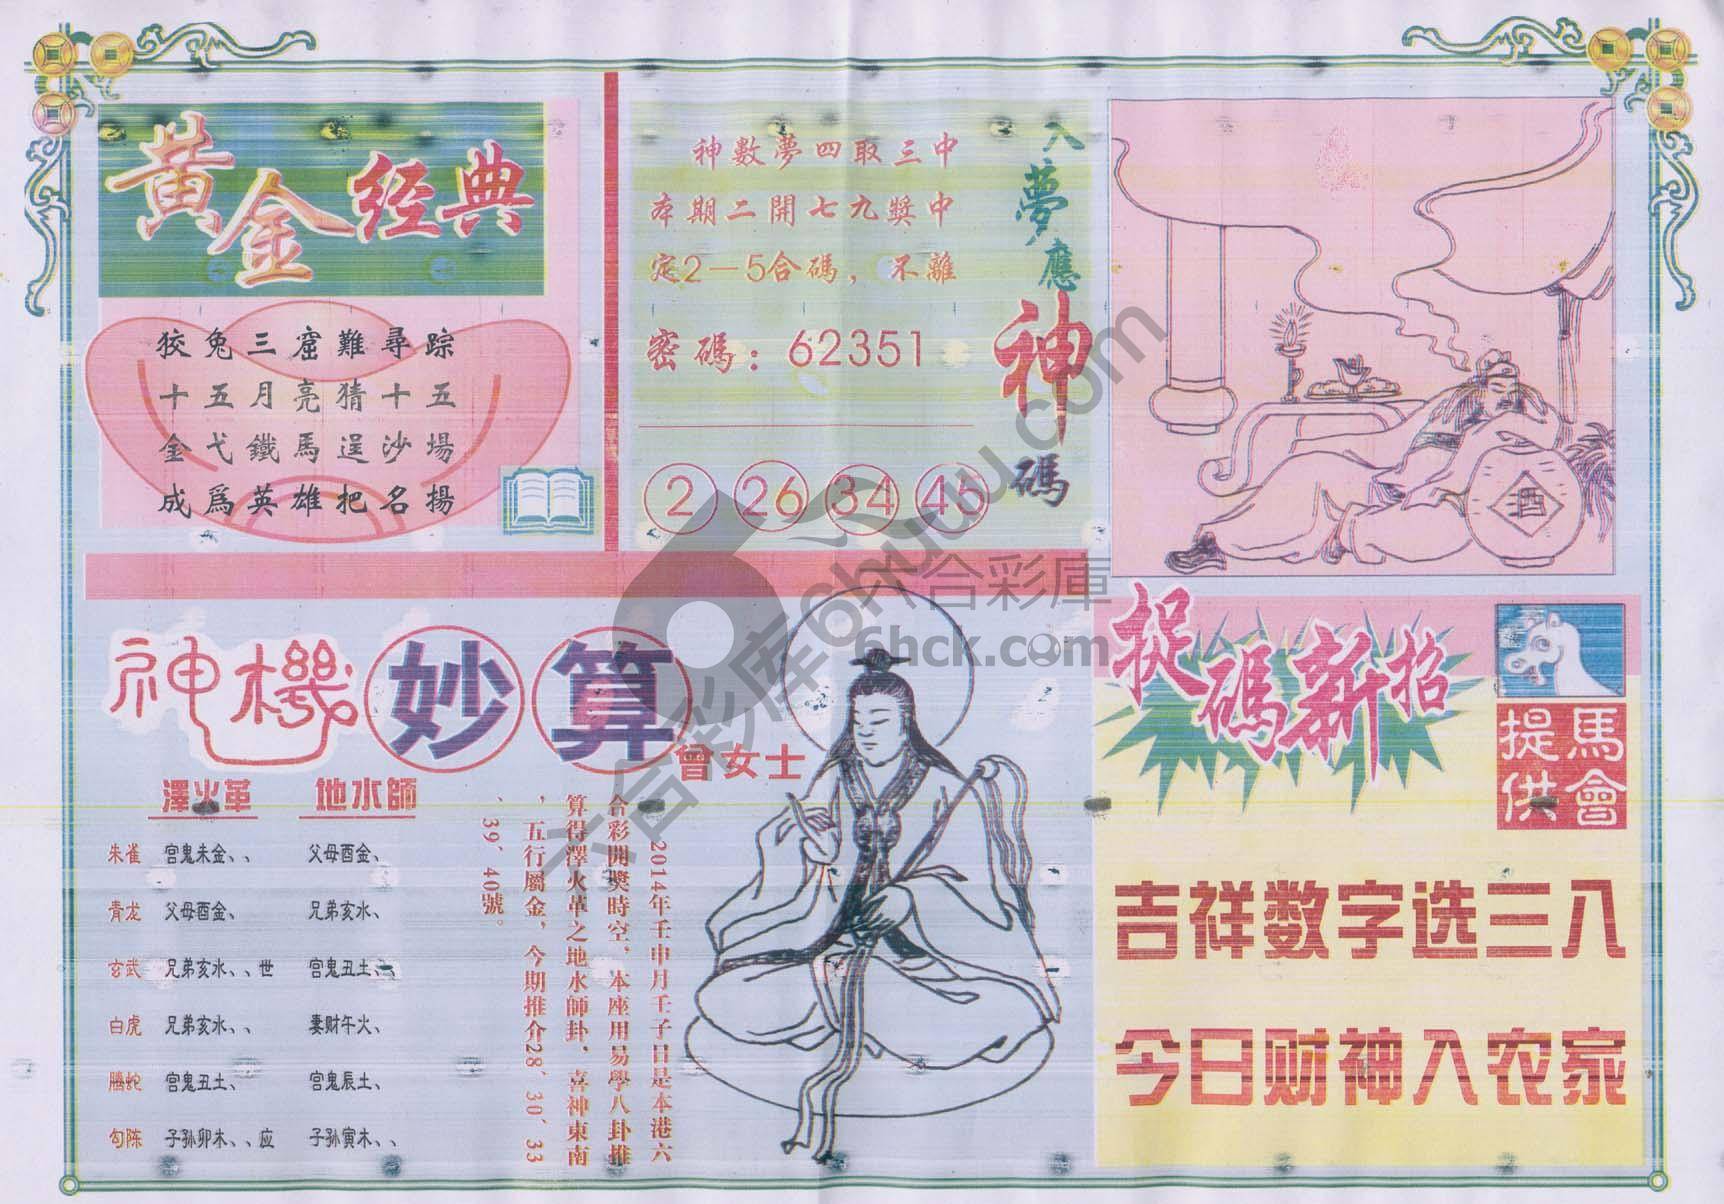 黃金经典
狡兔三窟難尋踪
十五月亮猜十五
金戈鐵馬逞沙場
成爲英雄把名揚
神數夢四取三中
本期二開七九獎中
定2一5合碼，不離
密碼：62351
2 26 34 45
入夢應神碼
酒
神機妙算
曾女士
澤火革 地水師
朱雀 官鬼未金、、 父母酉金、
青龙 父母酉金、 兄弟亥水、
玄武 兄弟亥水、、世 官鬼丑土、、
白虎 兄弟亥水、、 妻财午火、
腾蛇 官鬼丑土、 官鬼辰土、
勾陈 子孙卯木、、应 子孙寅木、、
2014年壬申月壬子日是本港六
合彩開獎時空、本座用易學八卦推
算得澤火革之地水師卦、喜神東南
，五行屬金，今期推介28、30、33
、39、40號。
捉碼新招
馬會
提供
吉祥数字选三入
今日财神入农家
六合彩库 6huw.com
六合彩庫
6hck.com